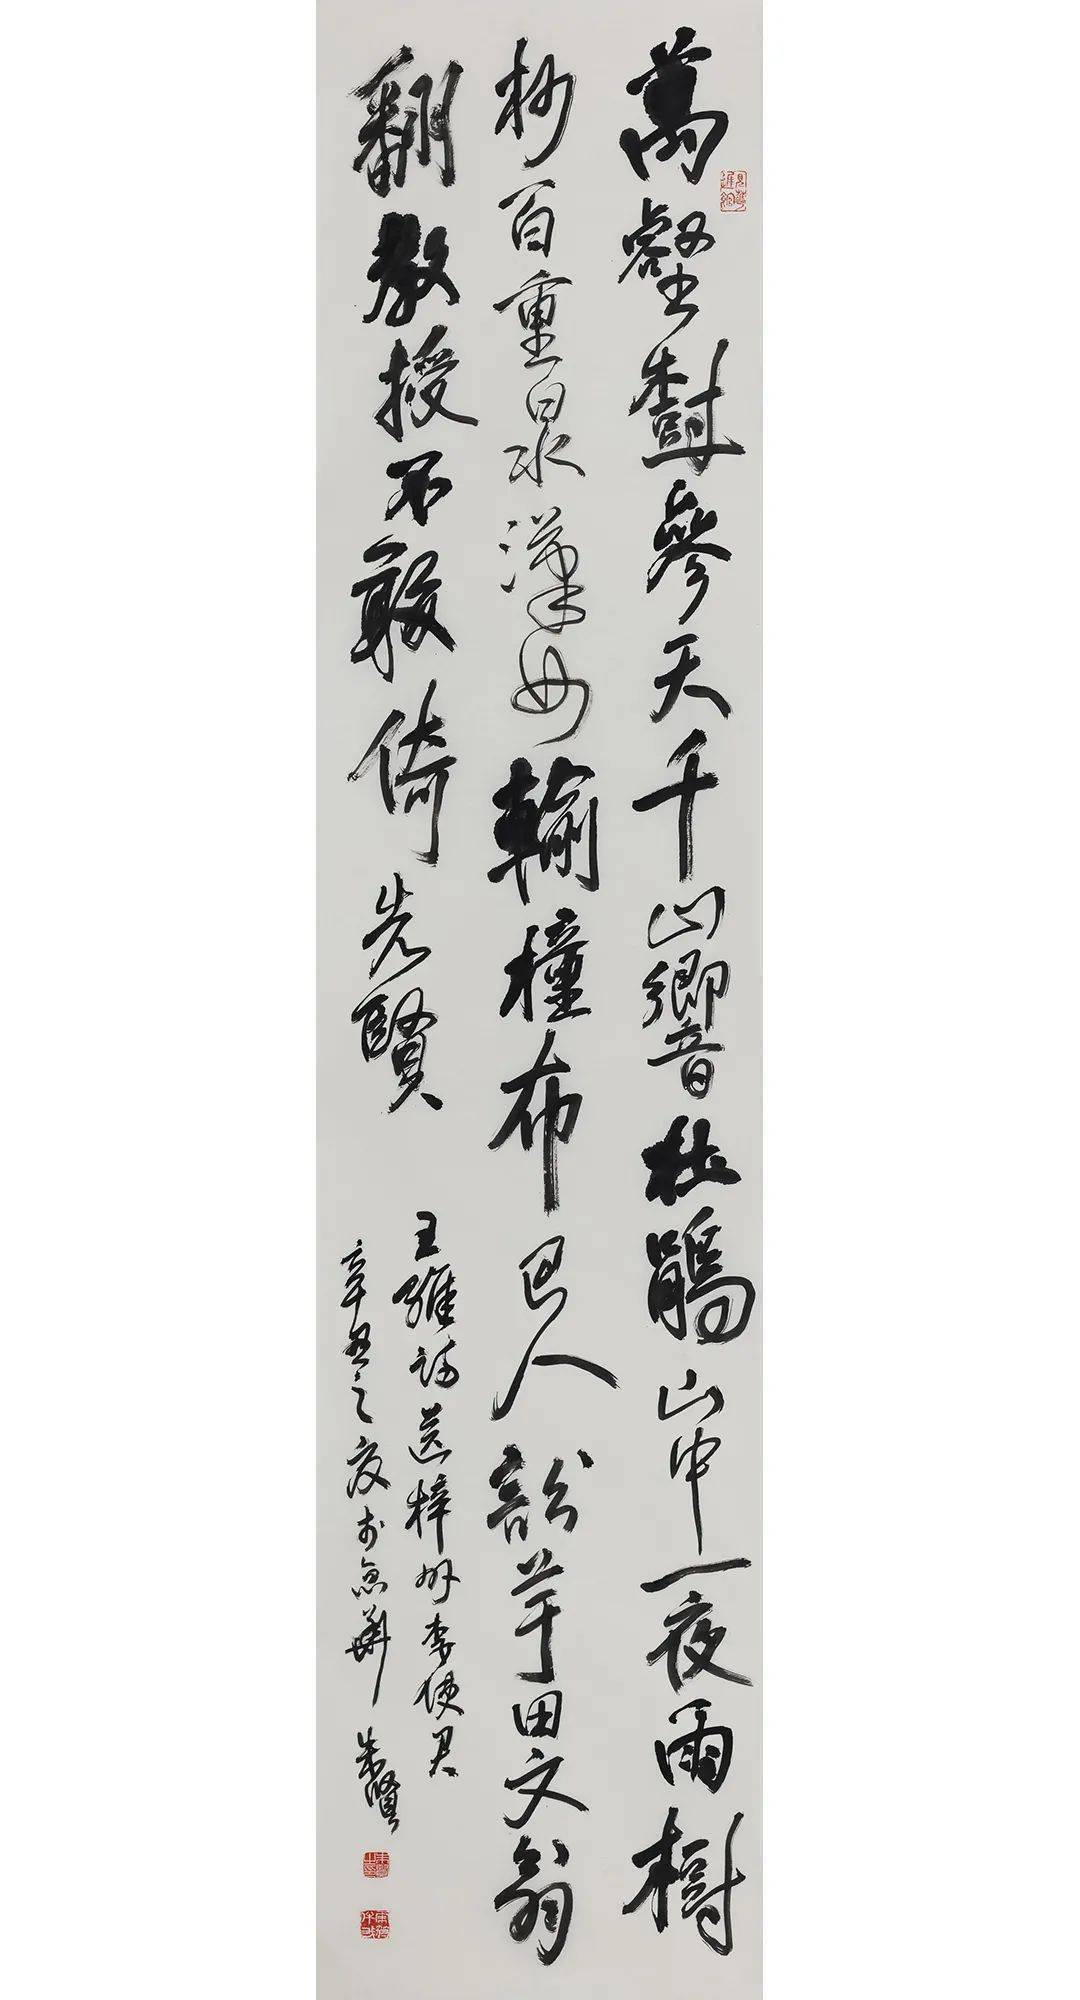 萬壑樹參天千山響杜鵑山中一夜雨樹
杪百重泉漢女輸橦布巴人訟芋田文翁
翻教授不敢倚先賢
王維詩送梓州李使君
辛丑之夏於京華 朱賢